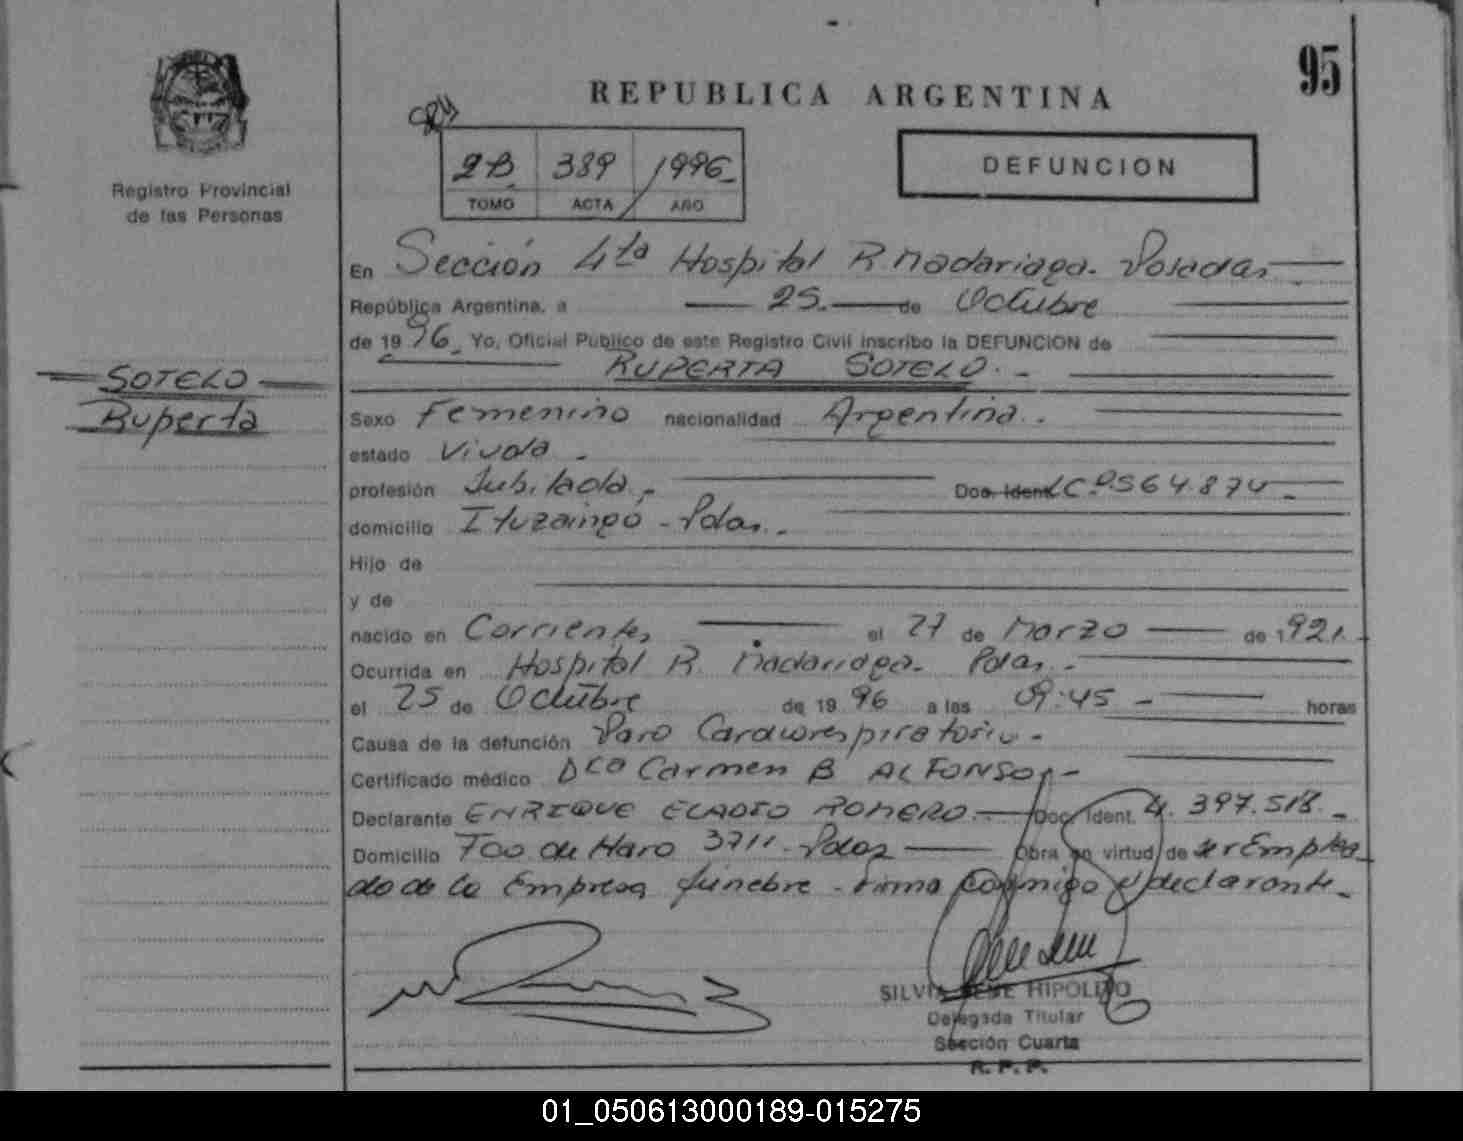 95
REPUBLICA ARGENTINA
2B 389 1996
TOMO ACTA AÑO
DEFUNCION
Registro Provincial
de las Personas
SOTELO
Ruperta
En Sección 4ta Hospital R. Madariaga. Posadas
República Argentina, a 25. de Octubre
de 1996 Yo, Oficial Público de este Registro Civil inscribo la DEFUNCION de
RUPERTA SOTELO.
Sexo Femenino nacionalidad Argentina.
estado Viuda
profesión Jubilada Doc. Ident. LC 564.874
domicilio Ituzaingó - Pdas.
Hijo de
y de
nacido en Corrientes el 27 de Marzo de 1921.
Ocurrida en Hospital R. Madariaga. Pdas.
el 25 de Octubre de 1996 a las 09:45 horas
Causa de la defunción Paro Cardiorespiratorio
Certificado médico Dra Carmen B ALFONSO
Declarante ENRIQUE ELADIO ROMERO Doc. Ident. 4.397.518
Domicilio Fco. de Haro 3711 Pdas Obra en virtud de ser Emplea
do de la Empresa funebre - firma conmigo el declarante
SILVIA HIPOLITO
Delegada Titular
Sección Cuarta
R. P. P.
01_050613000189-015275